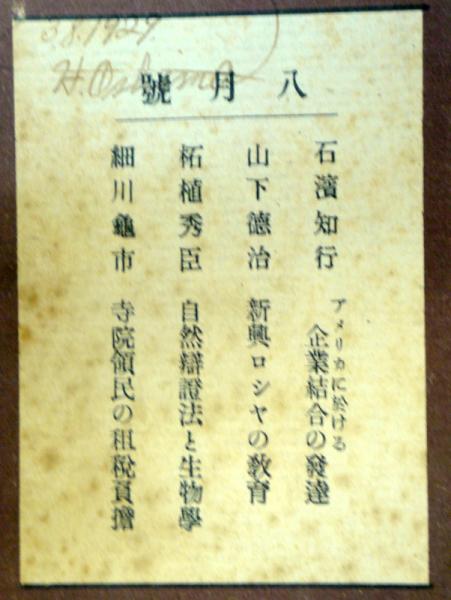 3.8.1929.
H. Oshima
八月號
石濱知行 アメリカに於ける
企業結合の發達
山下德治 新興ロシヤの教育
柘植秀臣 自然辯證法と生物學
細川龜市 寺院領民の租稅負擔